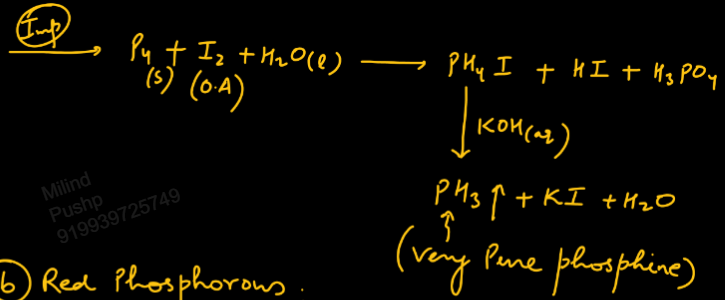 Imp
P4 + I2 + H2O(l) → PH4I + HI + H3PO4
(s) (O.A)
↓ KOH(aq)
PH3↑ + KI + H2O
(very Pure phosphine)
Milind
Pushp
919939725749
b) Red Phosphorous.